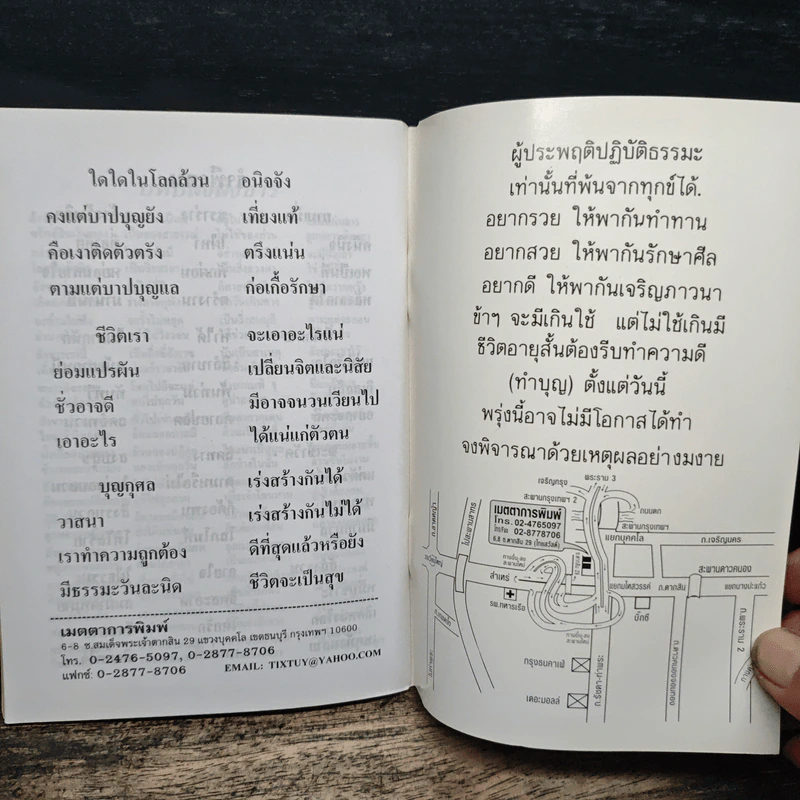 ใดใดในโลกล้วน อนิจจัง
คงแต่บาปบุญยัง เที่ยงแท้
คือเงาติดตัวตรัง ตรึงแน่น
ตามแต่บาปบุญแล ก่อเกื้อรักษา
ชีวิตเรา จะเอาอะไรแน่
ย่อมแปรผัน เปลี่ยนจิตและนิสัย
ชั่วอาจดี มีอาจจนวนเวียนไป
เอาอะไร ได้แน่แก่ตัวตน
บุญกุศล เร่งสร้างกันได้
วาสนา เร่งสร้างกันไม่ได้
เราทำความถูกต้อง ดีที่สุดแล้วหรือยัง
มีธรรมะวันละนิด ชีวิตจะเป็นสุข
เมตตาการพิมพ์
6-8 ซ.สมเด็จพระเจ้าตากสิน 29 แขวงบุคคโล เขตธนบุรี กรุงเทพฯ 10600
โทร. 0-2476-5097, 0-2877-8706
แฟกซ์: 0-2877-8706 EMAIL: TIXTUY@YAHOO.COM
ผู้ประพฤติปฏิบัติธรรมะ
เท่านั้นที่พ้นจากทุกข์ได้.
อยากรวย ให้พากันทำทาน
อยากสวย ให้พากันรักษาศีล
อยากดี ให้พากันเจริญภาวนา
ข้าฯ จะมีเกินใช้ แต่ไม่ใช้เกินมี
ชีวิตอายุสั้นต้องรีบทำความดี
(ทำบุญ) ตั้งแต่วันนี้
พรุ่งนี้อาจไม่มีโอกาสได้ทำ
จงพิจารณาด้วยเหตุผลอย่างมงาย
เจริญกรุง
พระราม 3
สะพานกรุงเทพฯ 2
ถนนตก
สะพานกรุงเทพฯ
เมตตาการพิมพ์
โทร. 02-4765097
โทร/Fax 02-8778706
6,8 ซ.ตากสิน 29 (โทรสวัสดิ์)
แยกบุคคโล
ถ.เจริญนคร
ถ.ลาดหญ้า
สำเหร่
รพ.ทหารเรือ
แยกมไหสวรรค์
ถ.ตากสิน
สะพานดาวคนอง
แยกบางปะแก้ว
บิ๊กซี
กรุงธนคาเฟ่
เดอะมอลล์
ถ.รัชดา-ท่าพระ
ถ.พระราม 2